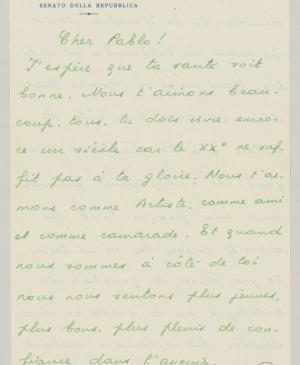 SENATO DELLA REPUBBLICA
Cher Pablo!
J'espère que ta santé soit
bonne. Nous t'aimons beau-
coup, tous, tu dois vivre enco-
re un siècle car le XXe ne suf-
fit pas à ta gloire. Nous t'ai-
mons comme Artiste, comme ami
et comme camarade. Et quand
nous sommes à côté de toi
nous nous sentons plus jeunes,
plus bons, plus pleins de con-
fiance dans l'avenir.